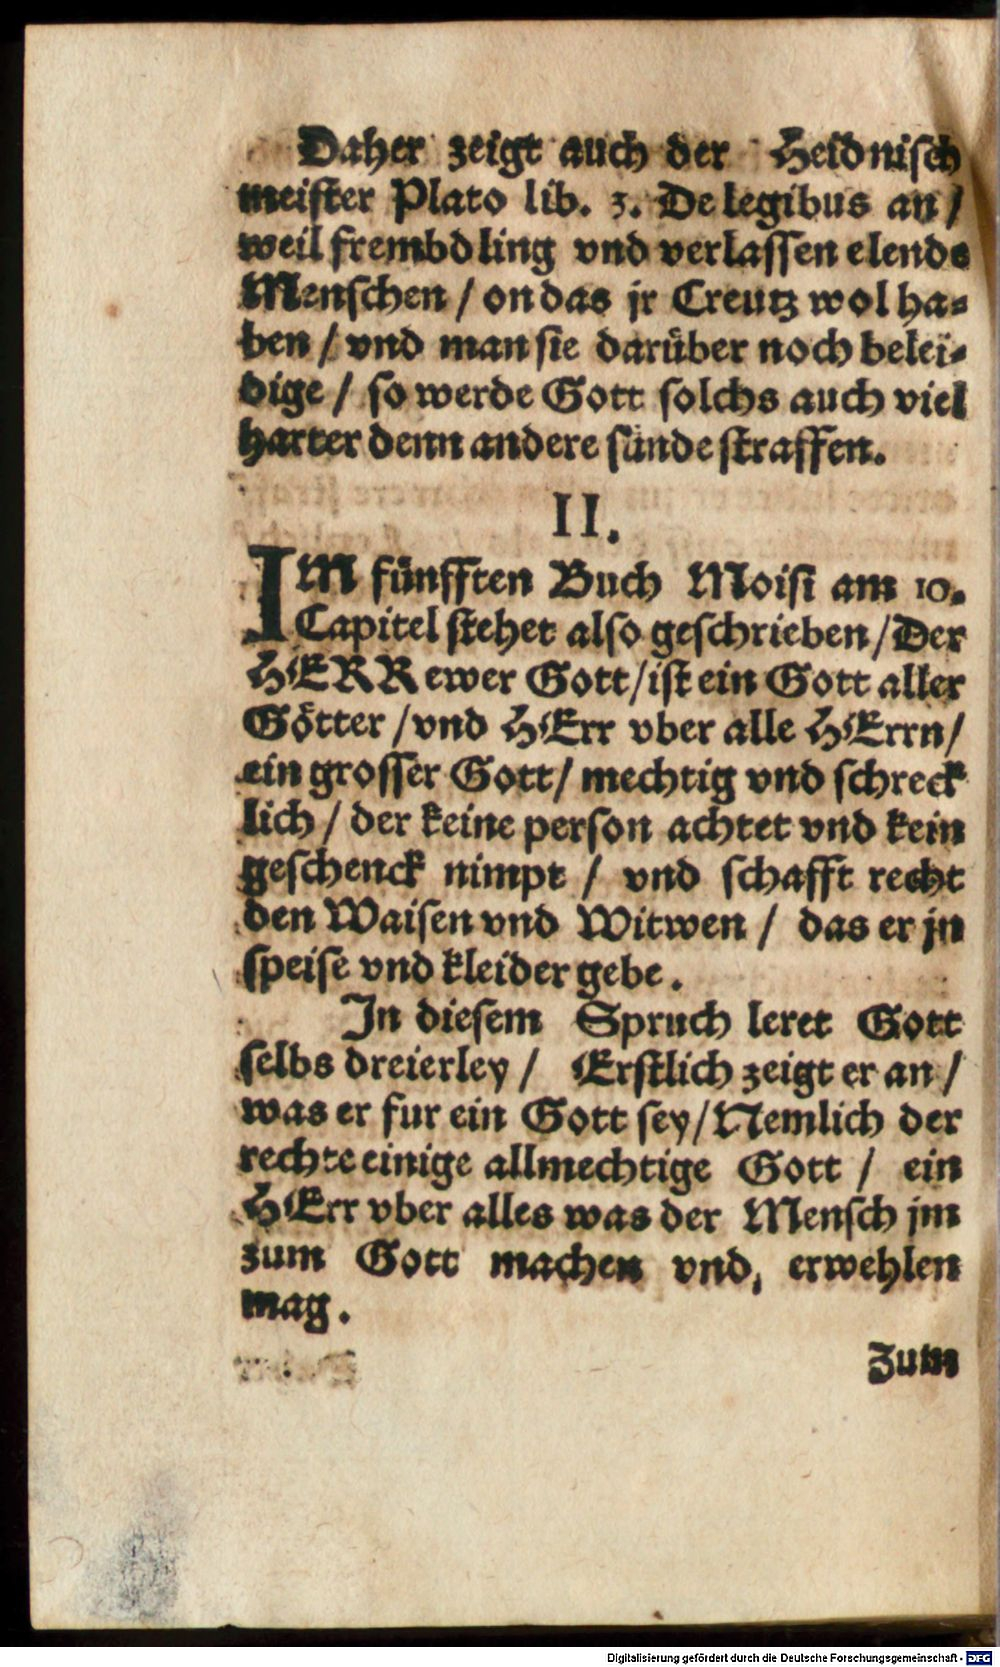 Daher zeigt auch der Heidnisch
meister Plato lib. 3. De legibus an /
weil frembdling vnd verlassen elende
Menschen / on das jr Creutz wol ha-
ben / vnd man sie darüber noch belei-
dige / so werde Gott solchs auch viel
harter denn andere sünde straffen.
II.
IM fünfften Buch Moisi am 10.
Capitel stehet also geschrieben / Der
HERR ewer Gott / ist ein Gott aller
Götter / vnd HErr vber alle HErrn /
ein grosser Gott / mechtig vnd schreck
lich / der keine person achtet vnd kein
geschenck nimpt / vnd schafft recht
den Waisen vnd Witwen / das er jn
speise vnd kleider gebe.
In diesem Spruch leret Gott
selbs dreierley / Erstlich zeigt er an /
was er fur ein Gott sey / Nemlich der
rechte einige allmechtige Gott / ein
HErr vber alles was der Mensch jm
zum Gott machen vnd, erwehlen
mag.
Zum
Digitalisierung gefördert durch die Deutsche Forschungsgemeinschaft - DFG